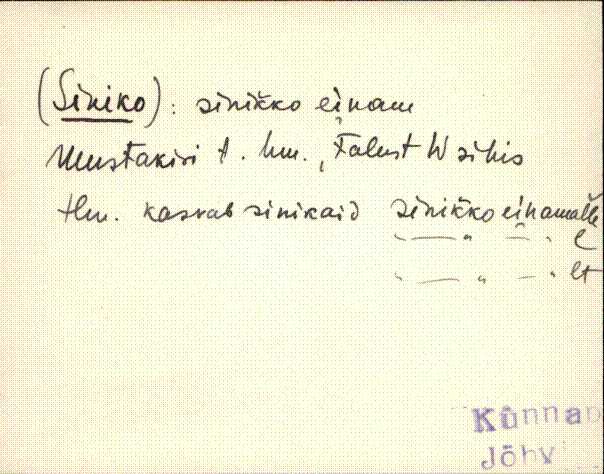 (Siniko): sinikko einam
Mustakivi t. hm., Talust W sihis
Hm. kasvab sinikaid sinikko einamalle
" — " — " l
" — " — " lt
Künnap
Jõhv